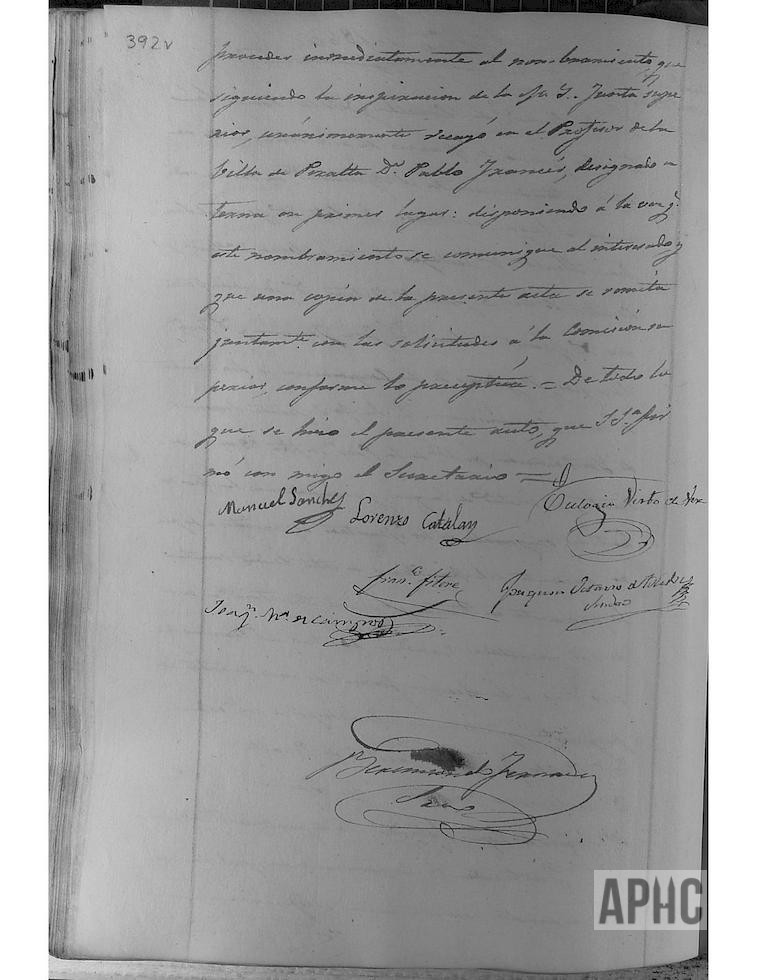 392v
proceder inmediatamente al nombramiento, que
siguiendo la inspiracion de la M. Y. Junta supe
rior, unánimemente recayó en el Profesor de la
Villa de Peralta Dn. Pablo Francés, designado en
terna en primer lugar: disponiendo á la vez q.
este nombramiento se comunique al interesado y
que una copia de la presente acta se remita
juntamte. con las solicitudes á la Comisión su
perior, conforme lo preceptúa. = De todo lo
que se hizo el presente auto, que S Sa. fir
mó con migo el Secretario =
Manuel Sanchez
Lorenzo Catalan
Eulogio Virto de Vera
Franco. Fitero
Joaquin Octavio de Toledo
Sindco
Joaqn. Ma. de Campos
Veremundo Fernandez
Srio
APHC